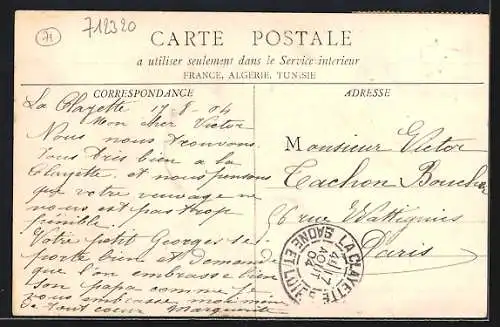 71
712320
CARTE POSTALE
a utiliser seulement dans le Service intérieur
FRANCE, ALGERIE, TUNISIE
CORRESPONDANCE
ADRESSE
La Clayette 17-8-04
Mon cher Victor
Nous nous trouvons
tous très bien a la
Clayette. et nous pensons
que votre veuvage ne
nous est pas trop
pénible.
Votre petit Georges se
porte bien et demande
que l'on embrasse bien
son papa comme je
vous embrasse moi même
de tout coeur Marguerite
Monsieur Victor
Tachon Boucher
56 rue Wattignies
Paris
LA CLAYETTE
17
AOUT
04
SAONE ET LOIRE